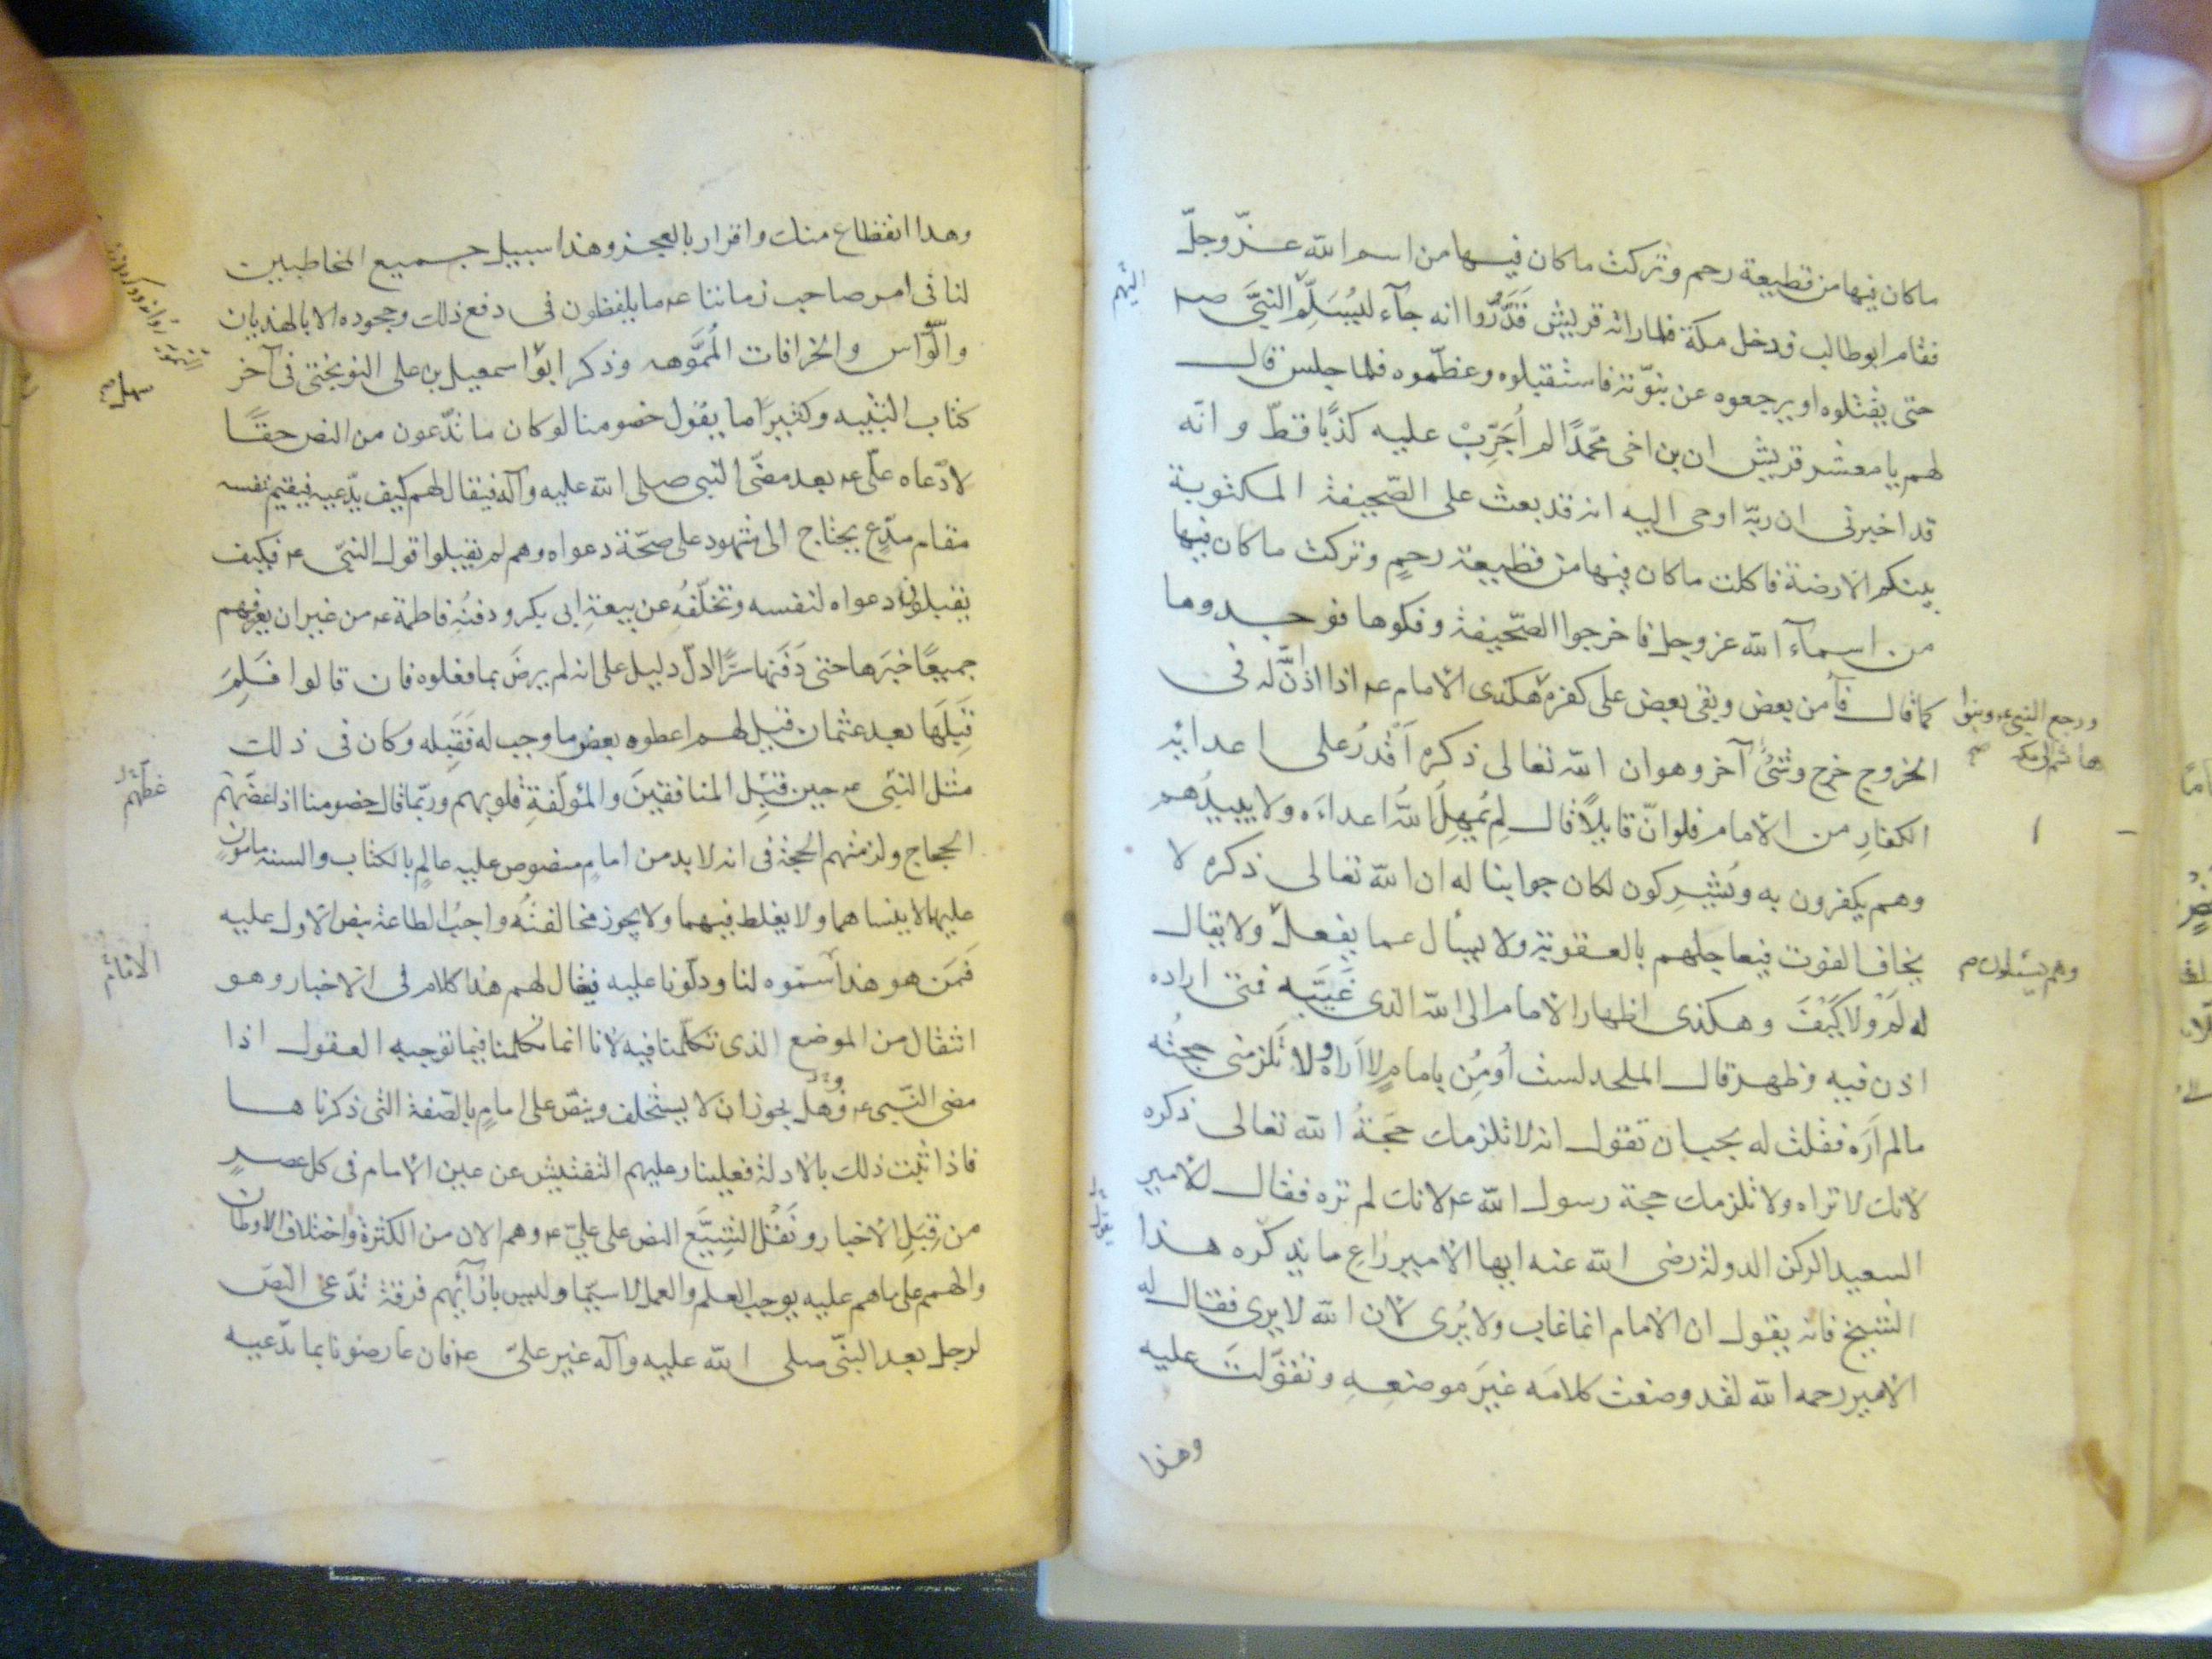 ما كان فيها من قطيعة رحم وتركت ما كان فيها من اسم الله عزّ وجلّ
فقام ابو طالب فدخل مكة فلما راته قريش قَدَّرُوا انه جآء ليُسَلِّم النبيَّ صم
اليهم
حتى يقتلوه او يرجعوه عن نبوّته فاستقبلوه وعظّموه فلما جلس قال
لهم يا معشر قريش ان بن اخى محمّدًا لم اُجَرِّبْ عليه كذبًا قطّ وانّه
قد اخبرنى ان ربّه اوحى اليه انه قد بعث على الصّحيفة المكتوبة
بينكم الارضة فاكلت ما كان فيها من قطيعة رحمٍ وتركت ما كان فيها
من اسمآء الله عز وجل فاخرجوا الصّحيفة وفكوها فوجدوها
كما قال فآمن بعض وبقى بعض على كفره هكذى الامام عم اذا اذن له فى
ورجع النبى عم وبنوا
هاشم الى مكة صح
الخروج خرج وشئٌ آخر وهو ان الله تعالى ذكره اَقْدرُ على اعدائه
الكفارِ من الامام فلو انّ قايلاً قال لِمَ يُمهِلُ اللهُ اعداءَه ولا يبيدُهم
وهم يكفرون به ويُشرِكون لكان جوابنا له ان الله تعالى ذكره لا
يخاف الفوت فيعاجلهم بالعقوبة ولا يسأل عما يفعل ولا يقال
وهم يسئلون صح
له لِمَ ولا كَيْفَ وهكذى اظهار الامام الى الله الذى غَيَّبه فمتى اراده
اذن فيه فظهر قال الملحد لست اُومِنُ بامامٍ لا اراه ولا تَلزمنى حجتُه
ما لم اَرَه فقلت له يجب ان تقول انه لا تلزمك حجّةُ الله تعالى ذكره
لانك لا تراه ولا تلزمك حجة رسول الله عم لانك لم تره فقال للامير
السعيد الركن الدولة رضى الله عنه ايها الامير راعِ ما يذكره هذا
يقول
الشيخ فانه يقول ان الامام انما غاب ولا يُرى لان الله لا يرى فقال له
الامير رحمه الله لقد وضعت كلامَه غيرَ موضعِهِ وتقوّلتَ عليه
وهذا
وهذا انقطاع منك واقرار بالعجز وهذا سبيل جميع المخاطبين
لنا فى امر صاحب زماننا عم ما يلفظون فى دفع ذلك وجحوده الا بالهذيان
والوسواس والخرافات المُمَوَّهه وذكر ابو اسمعيل بن على النوبختى فى آخر
سهل صح
كتاب التنبيه وكثيرًا ما يقول خصومنا لو كان ما تدّعون من النص حقًا
لادّعاه علىّ عم بعد مضىّ النبى صلى الله عليه وآله فيقال لهم كيف يدّعيه فيقيم نفسه
مقام مدّعٍ يحتاج الى شهود على صحّة دعواه وهم لم يقبلوا قول النبىّ عم فكيف
يقبلون دعواه لنفسه وتخلّفُهُ عن بيعةِ ابى بكر ودفنُه فاطمة عم من غير ان يعرفهم
جميعًا خبرَها حتى دَفَنَها سرًّا ادلّ دليل على انه لم يرضَ بما فعلوه فان قالوا فَلِمَ
قَبِلَها بعد عثمان قيل لهم اعطوه بعض ما وجب له فَقَبِله وكان فى ذلك
مثل النبى عم حين قَبِل المنافقين والمؤلَّفةِ قلوبهم وربّما قال خصومنا اذا عضّهم
عظّهم
الحجاج ولزمتهم الحجة فى انه لا بد من امامٍ منصوص عليه عالمٍ بالكتاب والسنة مامونٍ
عليهما لا ينساهما ولا يغلط فيهما ولا يجوز مخالفتُه واجبُ الطاعة بنص الاول عليه
فمَن هو هذا سمّوه لنا ودلّونا عليه فيقال لهم هذا كلام فى الاخبار وهو
الامام
انتقال من الموضع الذى تكلّمنا فيه لانا انما تكلمنا فيما توجبه العقول اذا
مضى النّبى عم وهل يجوز ان لا يستخلف وينصّ على امامٍ بالصّفة التى ذكرناها
فاذا ثبت ذلك بالادلة فعلينا وعليهم التفتيش عن عين الامام فى كل عصرٍ
من قِبَلِ الاخبار ونَقْل الشِيَع النص على علىّ عم وهم الان من الكثرة واختلاف الاوطان
والهمم على ما هم عليه يوجب العلم والعمل لا سيّما وليس بازآئهم فرقة تدّعى النصّ
لرجل بعد النبّى صلى الله عليه وآله غير علىّ عم فان عارضونا بما تدّعيه